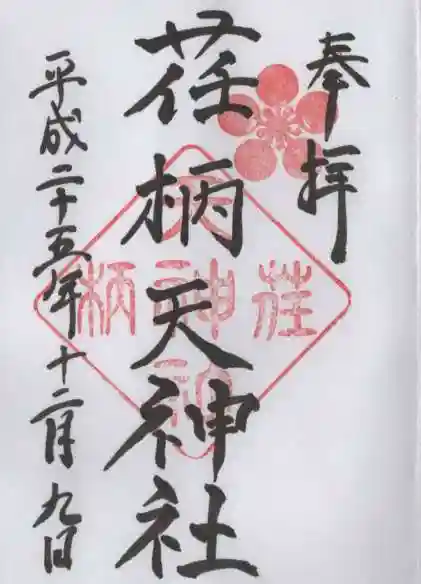 奉拝
荏柄天神社
平成二十五年十二月九日
荏
天神社
柄